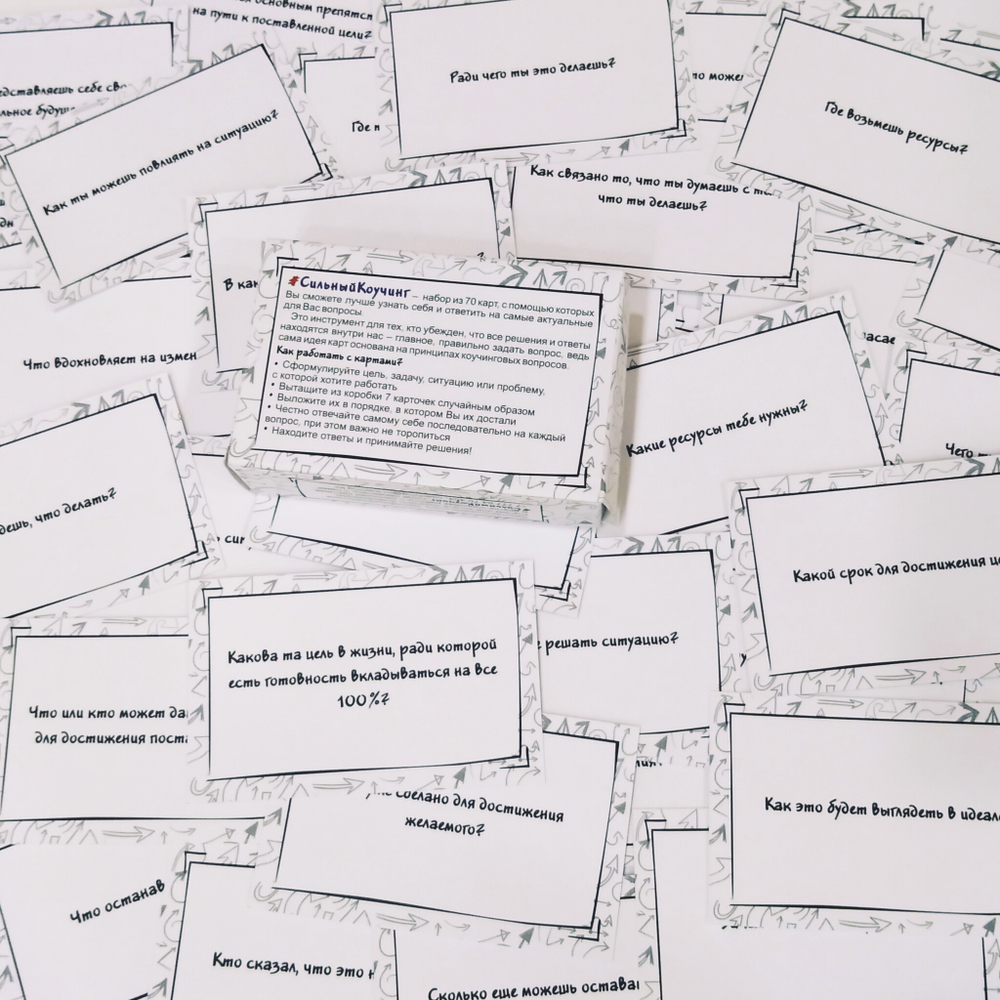 основным препятся
на пути к поставленной цели?
Ради чего ты это делаешь?
Где возьмешь ресурсы?
едставляешь себе
Как ты можешь повлиять на ситуацию?
Где
Как связано то, что ты думаешь с
что ты делаешь?
В
#СильныйКоучинг – набор из 70 карт, с помощью которых
Вы сможете лучше узнать себя и ответить на самые актуальные
для Вас вопросы.
Это инструмент для тех, кто убежден, что все решения и ответы
находятся внутри нас – главное, правильно задать вопрос, ведь
сама идея карт основана на принципах коучинговых вопросов.
Как работать с картами?
• Сформулируйте цель, задачу, ситуацию или проблему,
с которой хотите работать
• Вытащите из коробки 7 карточек случайным образом
• Выложите их в порядке, в котором Вы их достали
• Честно отвечайте самому себе последовательно на каждый
вопрос, при этом важно не торопиться
• Находите ответы и принимайте решения!
Что вдохновляет на измен
Какие ресурсы тебе нужны?
Чего
дешь, что делать?
Какой срок для достижения
решать ситуацию?
Какова та цель в жизни, ради которой
есть готовность вкладываться на все
100%?
Что или кто может да
для достижения пост
сделано для достижения
желаемого?
Как это будет выглядеть в идеал
Что останав
Кто сказал, что это
Сколько еще можешь остава